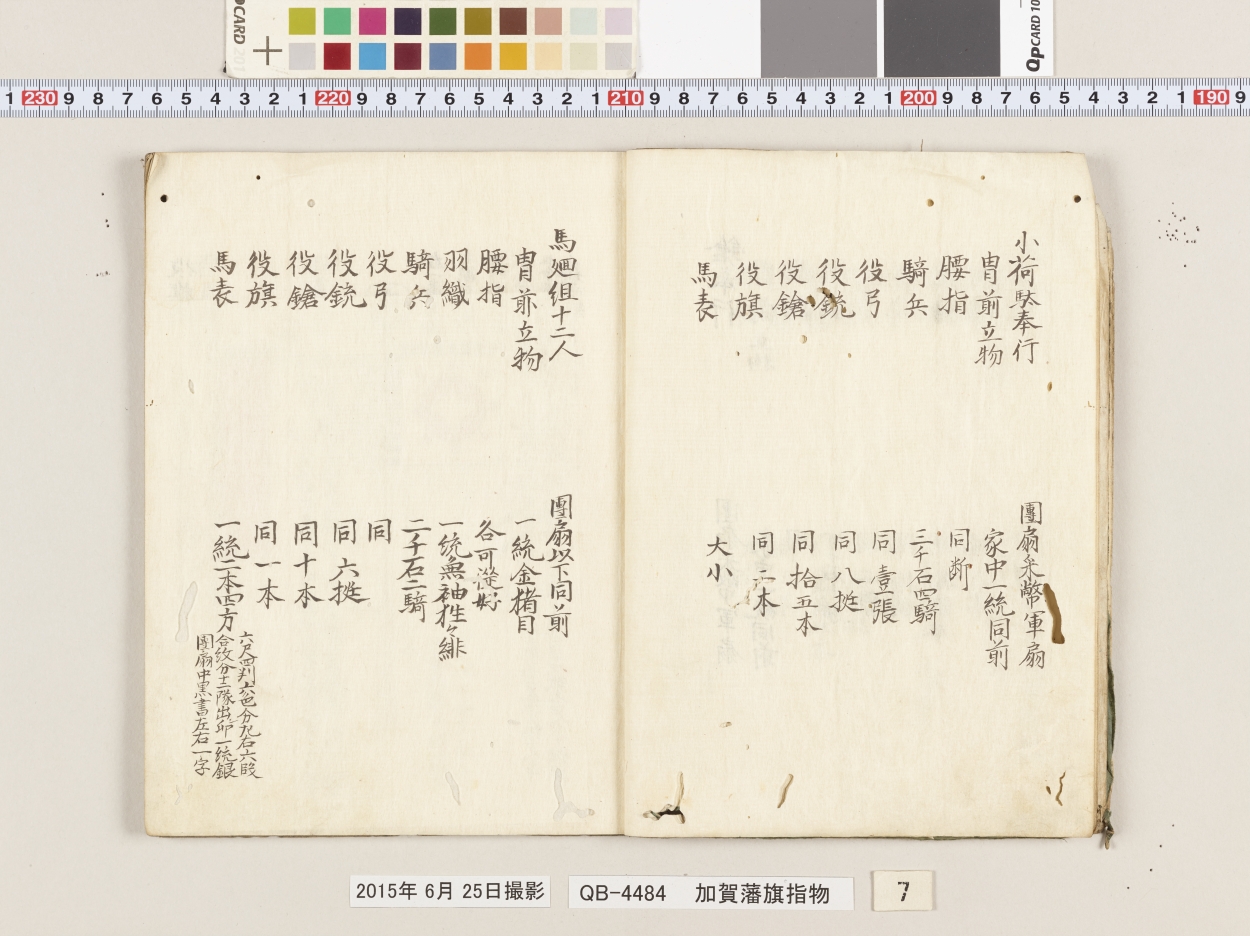 小荷駄奉行　團扇采幣軍扇
冑前立物　家中一統同前
腰指　同断
騎兵　三千石四騎
役弓　同壹張
役銃　同八挺
役鎗　同拾五本
役旗　同二本
馬表　大小
馬廻組十二人　團扇以下同前
冑前立物　一統金楮目
腰指　各可
羽織　一統無袖猩々緋
騎兵　二千石二騎
役弓　同
役銃　同六挺
役鎗　同十本
役旗　同一本
馬表　一統二本四方
六尺四判六色分左右六段
合紋分十二隊出印一統銀
團扇中黒書左右一字
2015年 6月 25日撮影
QB-4484　加賀藩旗指物
7
QPCARD 10
1 230 9 8 7 6 5 4 3 2 1 220 9 8 7 6 5 4 3 2 1 210 9 8 7 6 5 4 3 2 1 200 9 8 7 6 5 4 3 2 1 190 9